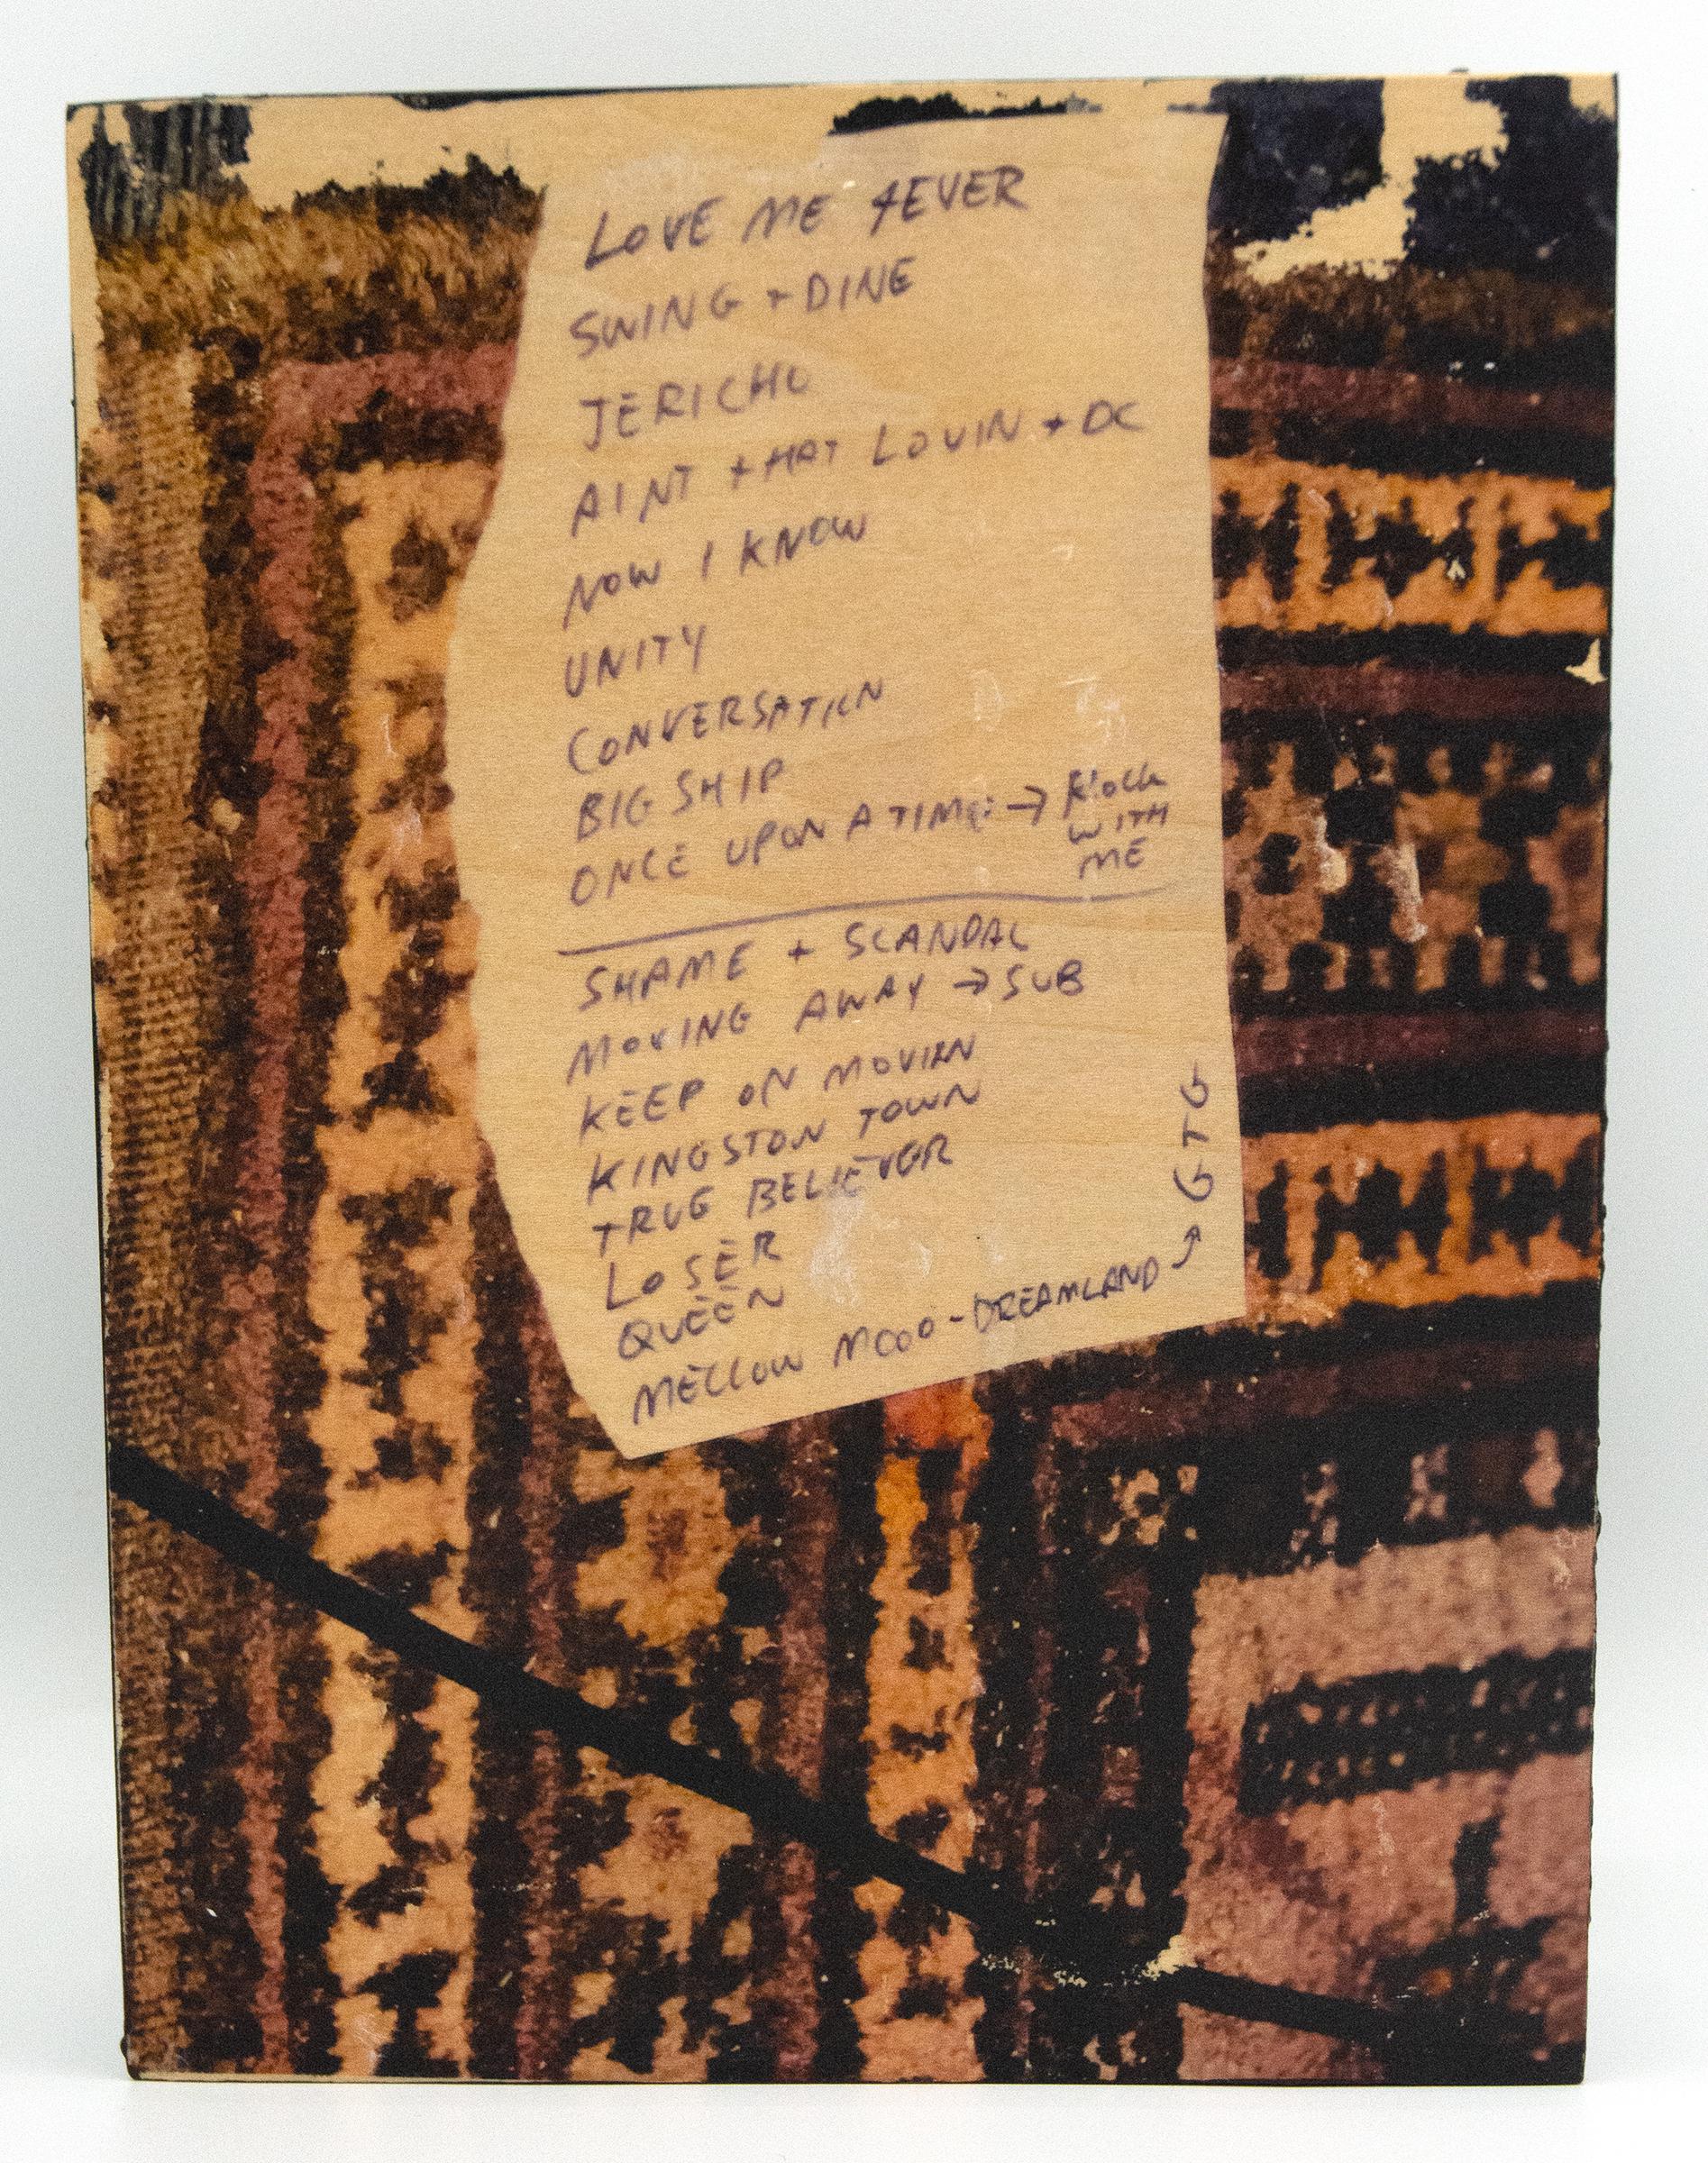 LOVE ME 4EVER
SWING + DINE
JERICHO
AINT THAT LOVIN + DC
NOW I KNOW
UNITY
CONVERSATION
BIG SHIP
ONCE UPON A TIME → ROCK
WITH
ME
SHAME + SCANDAL
MOVING AWAY → SUB
KEEP ON MOVIN
KINGSTON TOWN
TRUE BELIEVER
LOSER
QUEEN
MELLOW MOOD - DREAMLAND → GTG